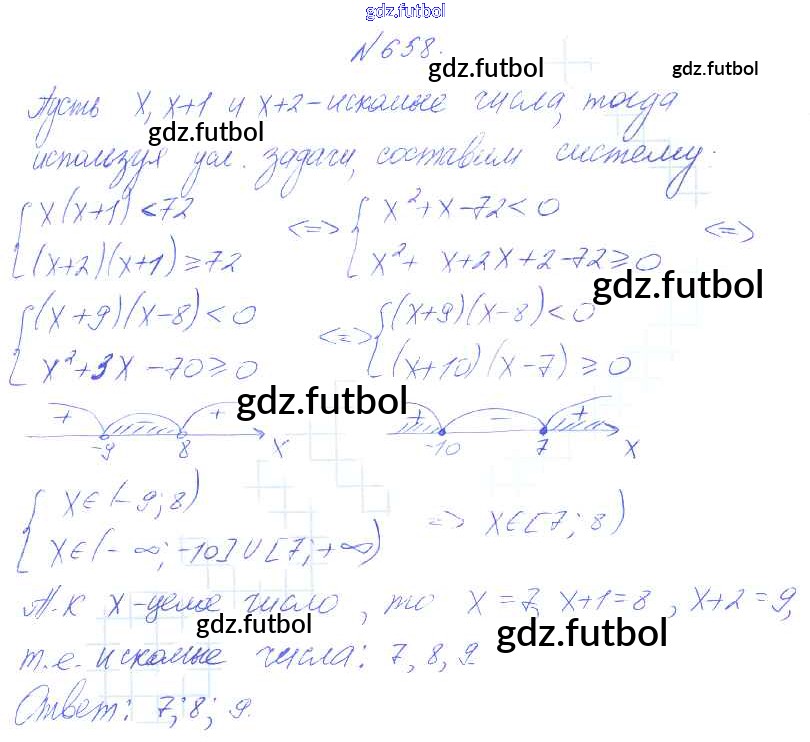 gdz.futbol
№658.
gdz.futbol gdz.futbol
Пусть x, x+1 и x+2 - искомые числа, тогда
gdz.futbol
используя усл. задачи, составим систему:
{ x(x+1) < 72 <=> { x²+x-72 < 0 <=>
(x+2)(x+1) ≥ 72 x²+ x+2x+2-72 ≥ 0
gdz.futbol
{ (x+9)(x-8) < 0 <=> { (x+9)(x-8) < 0
x²+3x-70 ≥ 0 (x+10)(x-7) ≥ 0
gdz.futbol
+ - + + - +
-9 8 x -10 7 x
{ x∈(-9; 8)
x∈(-∞; -10]∪[7; +∞) => x∈[7; 8)
Т.к x-целое число, то x=7, x+1=8, x+2=9,
gdz.futbol gdz.futbol
т.е. искомые числа: 7, 8, 9.
Ответ: 7; 8; 9.